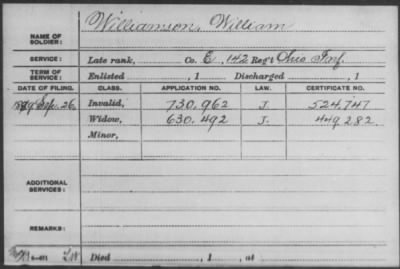 Williamson, William
NAME OF
SOLDIER:
SERVICE: Late rank, Co. E, 142 Reg't Ohio Inf.
TERM OF
SERVICE: Enlisted , 1 Discharged , 1
DATE OF FILING. CLASS. APPLICATION NO. LAW. CERTIFICATE NO.
Sep. 26 Invalid, 730,962 J. 524,747
Widow, 630,492 J. 449,282
Minor,
ADDITIONAL
SERVICES:
REMARKS:
Died , 1 , at